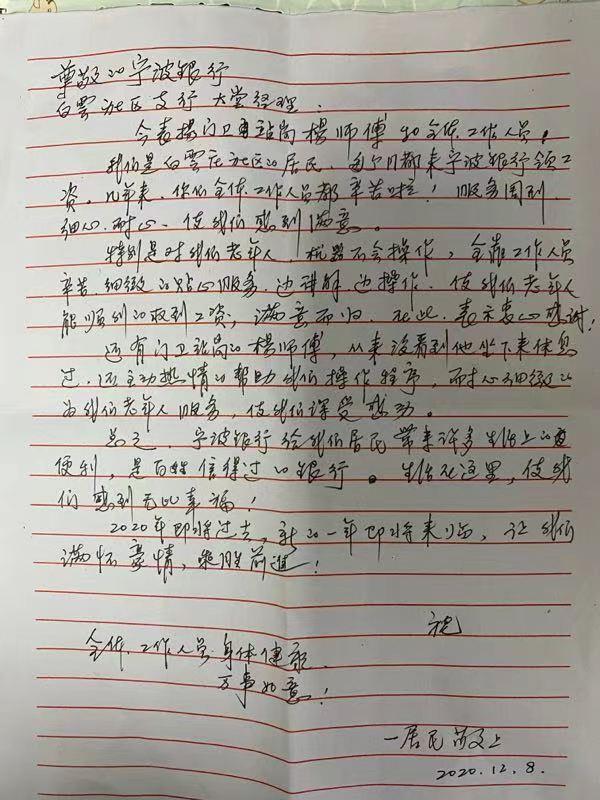 尊敬的宁波银行
白云社区支行大堂经理：
今表扬门卫站岗杨师傅和全体工作人员。
我们是白云庄社区的居民，每个月都来宁波银行领工
资。几年来，你们全体工作人员都辛苦啦！服务周到、
细心、耐心、使我们感到满意。
特别是对我们老年人，机器不会操作，全靠工作人员
辛苦、细微的贴心服务，边讲解，边操作，使我们老年人
能顺利的收到工资，满意而归，在此，表示衷心感谢！
还有门卫站岗的杨师傅，从来没看到他坐下来休息
过，还主动热情的帮助我们操作程序，耐心细微的
为我们老年人服务，使我们深受感动。
总之，宁波银行给我们居民带来许多生活上的
便利，是百姓信得过的银行。生活在这里，使我
们感到无比幸福！
2020年即将过去，新的一年即将来临，让我们
满怀豪情，乘胜前進！
祝
全体工作人员身体健康
万事如意！
一居民敬上
2020.12.8.